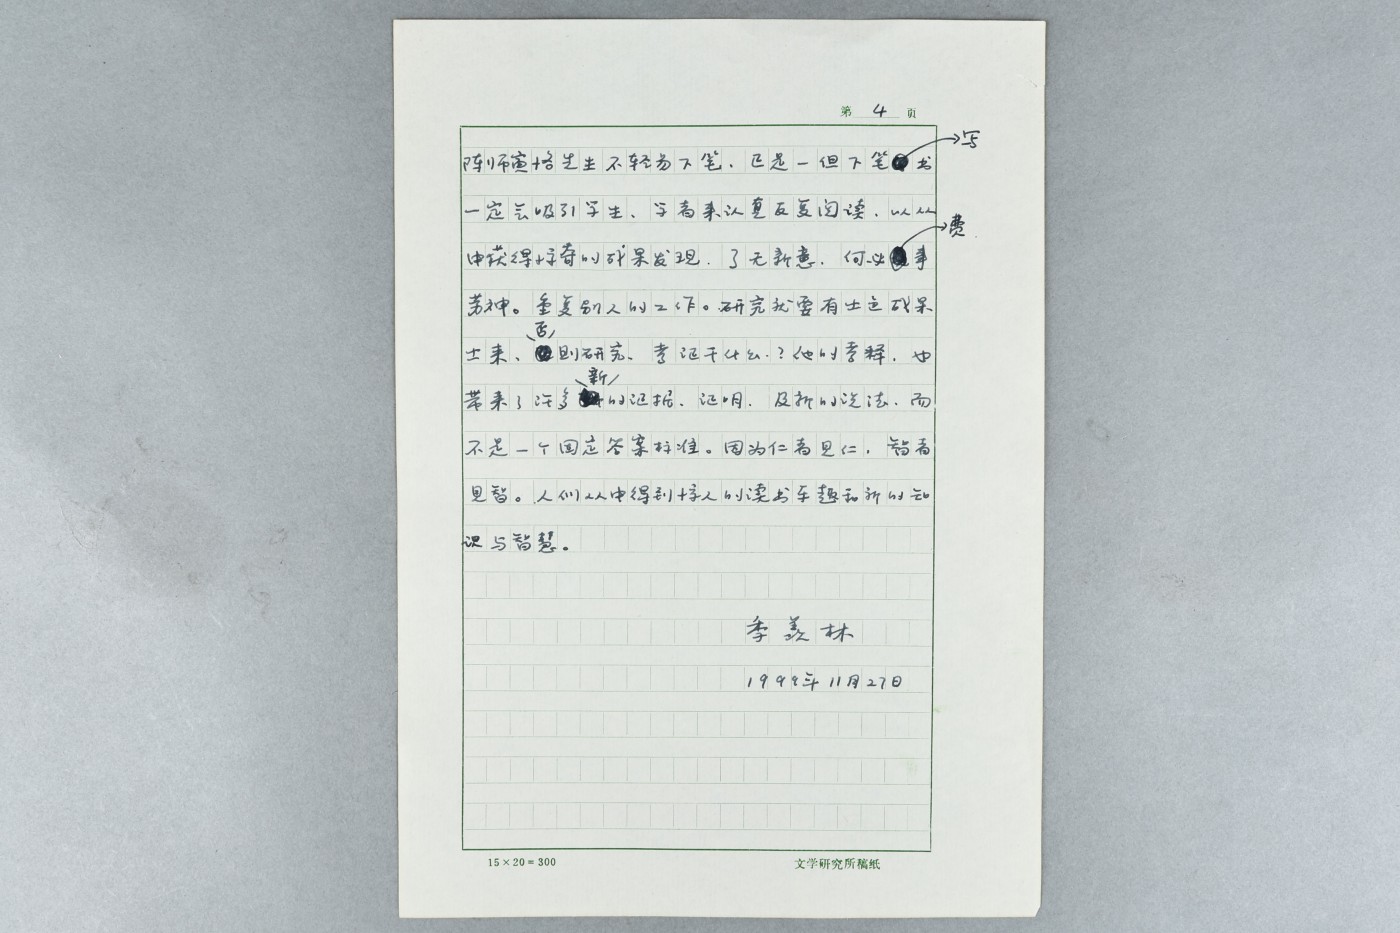 第 4 页
陈师寅恪先生不轻易下笔，但是一但下笔写书
一定会吸引学生、学者来认真反复阅读，以从
中获得惊奇的成果发现。了无新意，何必费事
劳神。重复别人的工作。研究就要有出色成果
出来，否则研究、考证干什么？他的考释，也
带来了许多新的证据、证明，及新的说法，而
不是一个固定答案标准。因为仁者见仁，智者
见智。人们从中得到惊人的读书乐趣和新的知
识与智慧。
季羡林
1999年11月27日
15×20=300
文学研究所稿纸